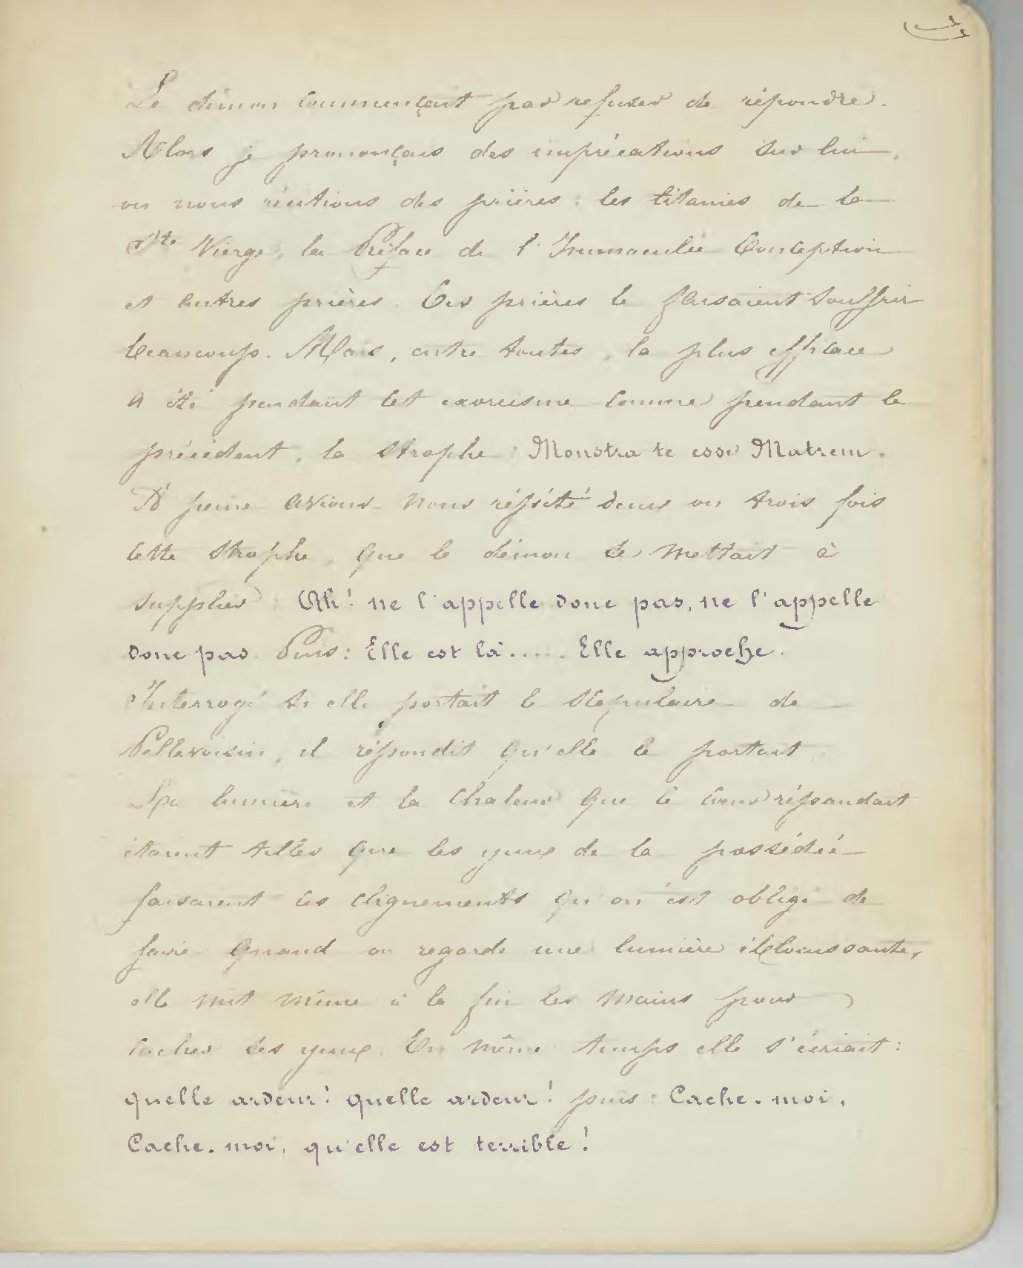 Le démon commençait par refuser de répondre.
Alors je prononçais des imprécations sur lui,
ou nous récitions des prières : les litanies de la
Ste Vierge, la Préface de l'Immaculée Conception
et autres prières. Ces prières le faisaient souffrir
beaucoup. Mais, entre toutes, la plus efficace
a été pendant cet exorcisme comme pendant le
précédent, la strophe : Monstra te esse Matrem.
À peine avions-nous répété deux ou trois fois
cette strophe, que le démon se mettait à
supplier : Ah! ne l'appelle donc pas, ne l'appelle
donc pas. Puis: Elle est là..... Elle approche.
Interrogé si elle portait le scapulaire de
Pellevoisin, il répondit qu'elle le portait.
La lumière et la chaleur que le cœur répandait
étaient telles que les yeux de la possédée
faisaient ces clignements qu'on est obligé de
faire quand on regarde une lumière éblouissante,
elle mit même à la fin les mains pour
cacher ses yeux. En même temps elle s'écriait :
quelle ardeur! quelle ardeur! puis : Cache-moi,
Cache-moi, qu'elle est terrible!